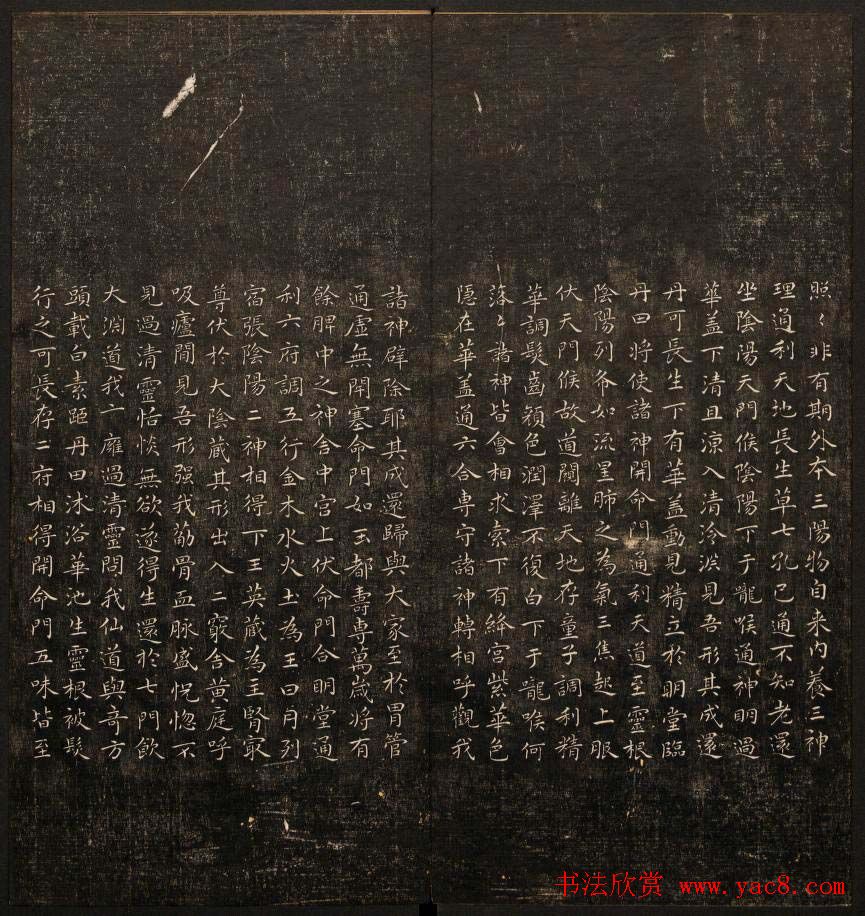 照〻非有期外本三陽物自来内養三神
理通利天地長生草七孔已通不知老還
坐陰陽天門候陰陽下于嚨喉通神明過
華盖下清且涼入清泠淵見吾形其成還
丹可長生下有華盖動見精立於明堂臨
丹田将使諸神開命門通利天道至靈根
陰陽列布如流星肺之為氣三焦起上服
伏天門候故道闚離天地存童子調利精
華調髮齒顔色潤澤不復白下于嚨喉何
落〻諸神皆會相求索下有絳宫紫華色
隱在華盖通六合専守諸神轉相呼觀我
諸神辟除耶其成還歸與大家至於胃管
通虚無閉塞命門如玉都壽専萬歳将有
餘脾中之神舎中宫上伏命門合明堂通
利六府調五行金木水火土為王日月列
宿張陰陽二神相得下玉英蔵為主腎最
尊伏於大陰蔵其形出入二竅舎黄庭呼
吸廬間見吾形强我筋骨血脉盛怳惚不
見過清靈恬惔無欲遂得生還於七門飲
大淵道我一廱過清靈問我仙道與奇方
頭載白素距丹田沐浴華池生靈根被髮
行之可長存二府相得開命門五味皆至
书法欣赏 www.yac8.com